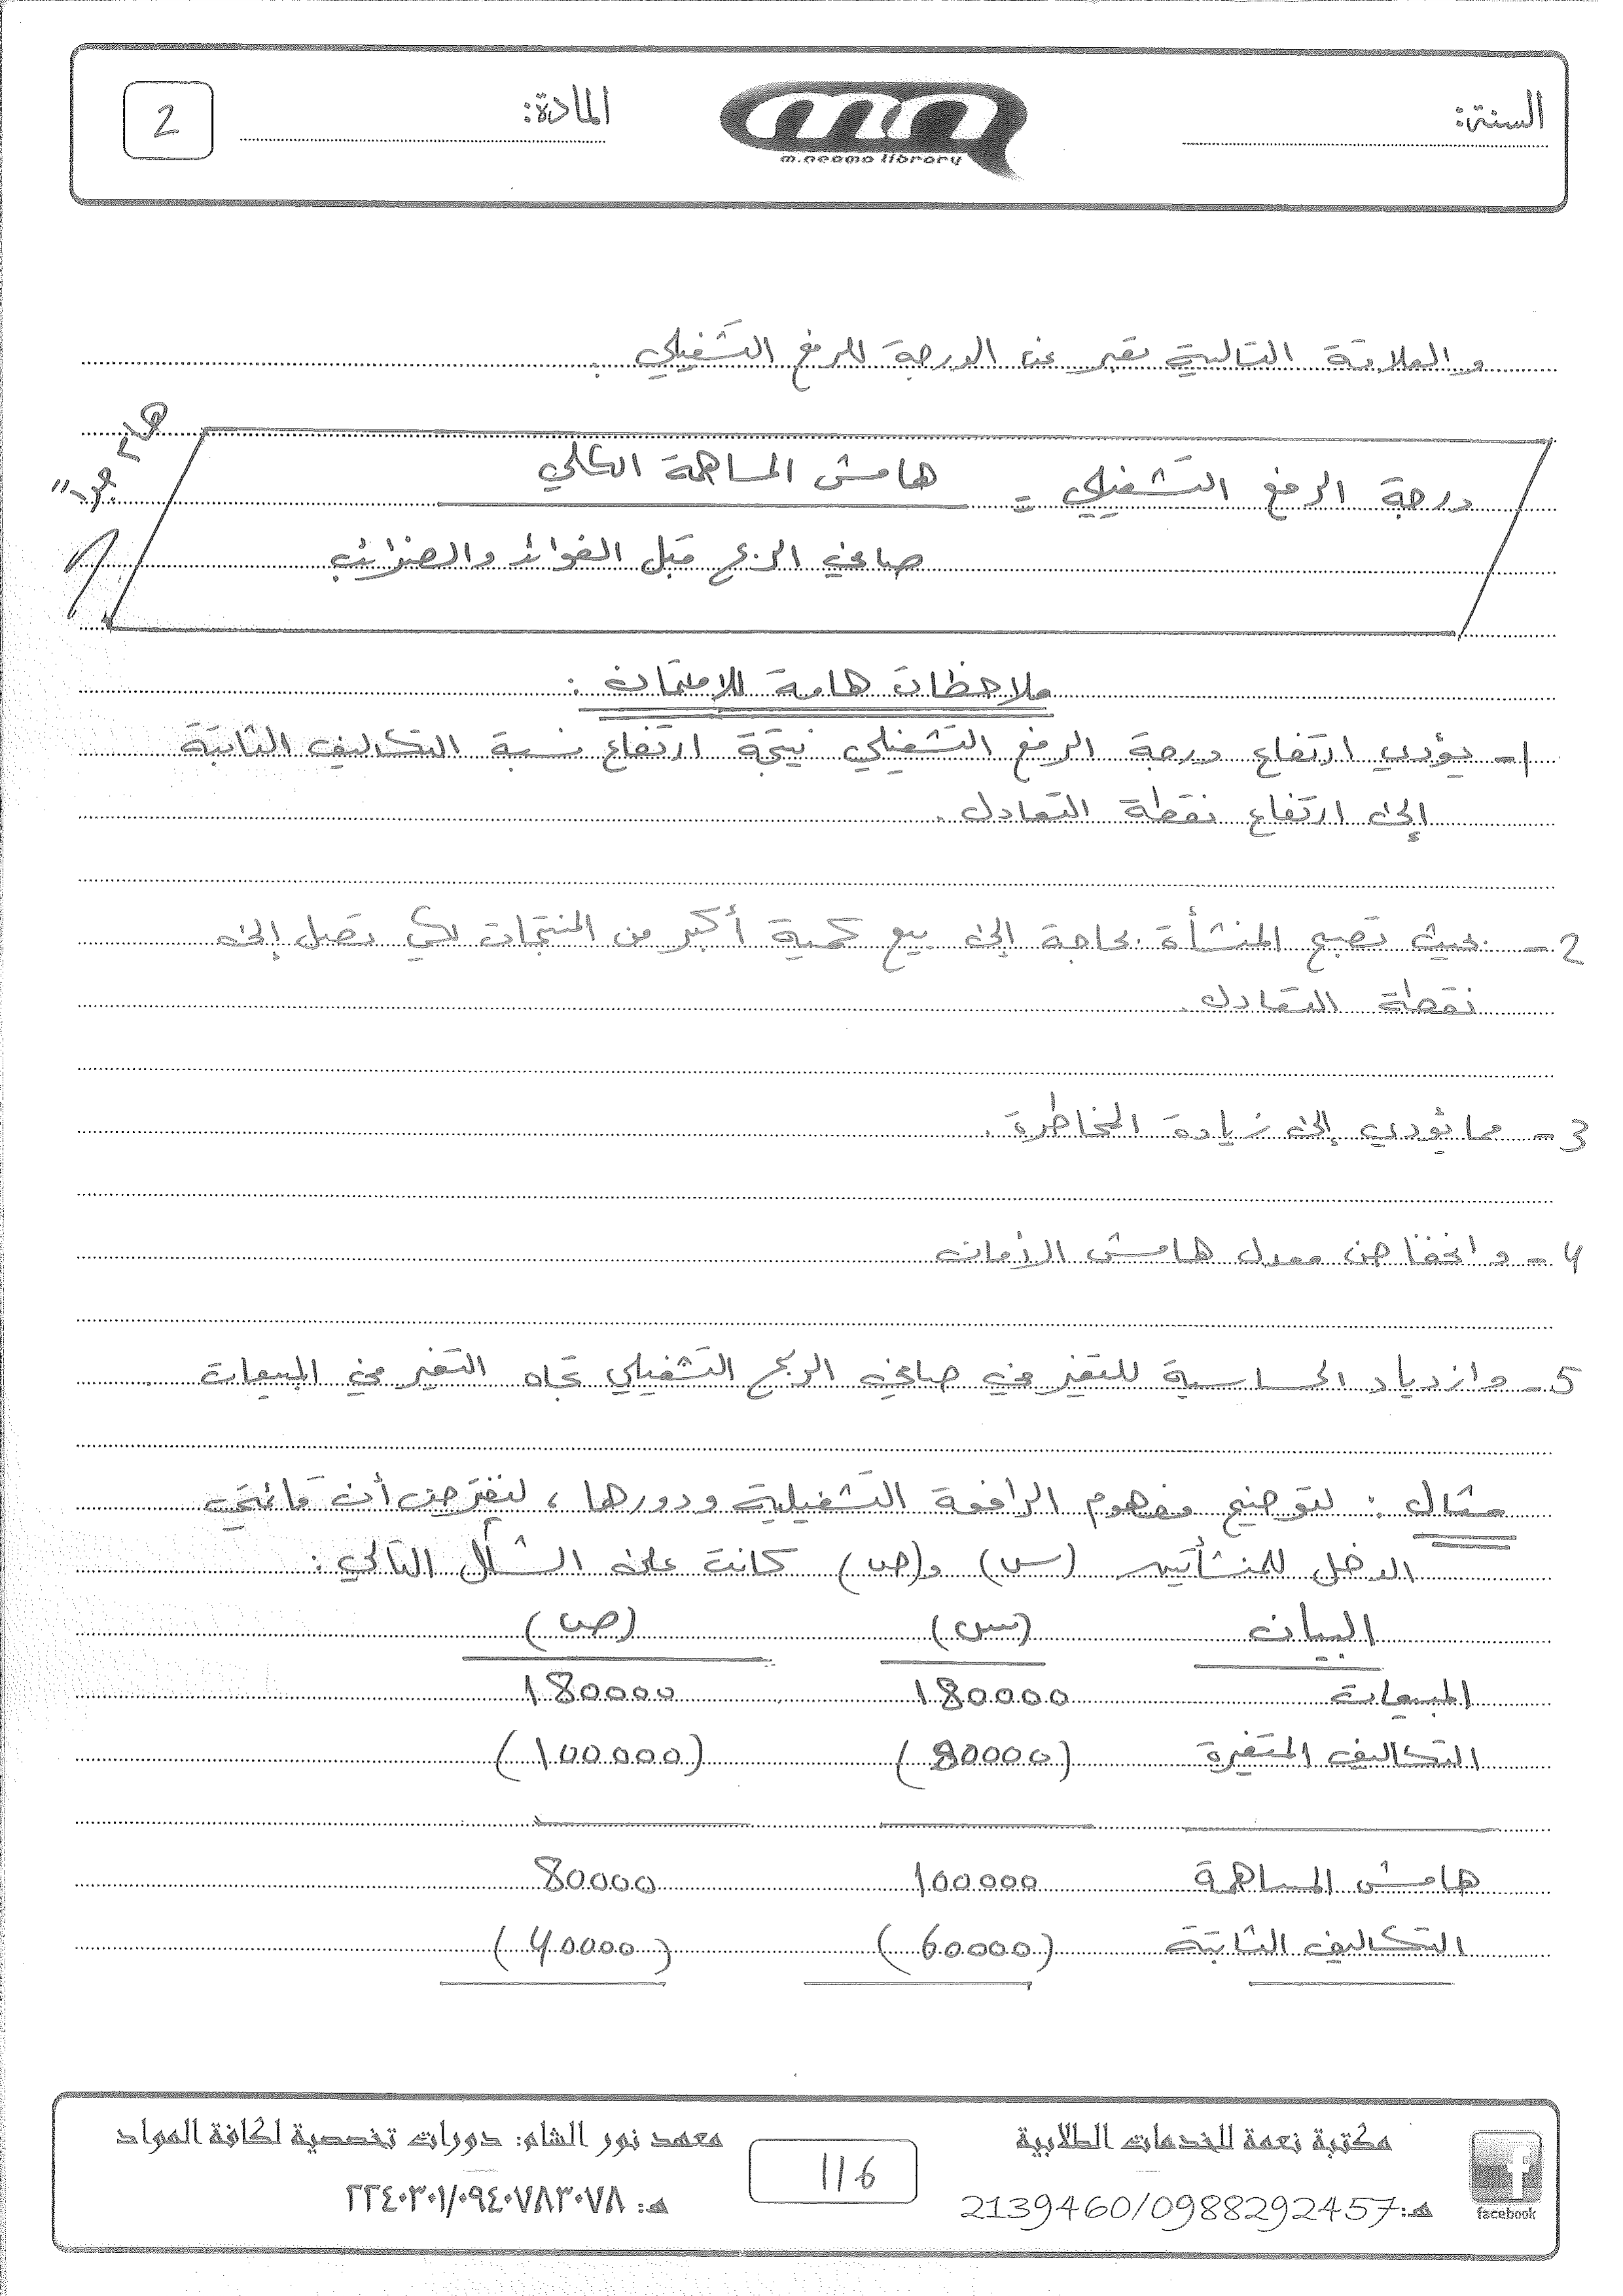 السنة:
المادة:
2
m.neama library
والعلاقة التالية تعبر عن الدرجة للرفع التشغيلي .
هام جداً
درجة الرفع التشغيلي = هامش المساهمة الكلي
صافي الربح قبل الفوائد والضرائب
ملاحظات هامة للامتحان :
1- يؤدي ارتفاع درجة الرفع التشغيلي نتيجة ارتفاع نسبة التكاليف الثابتة
إلى ارتفاع نقطة التعادل .
2- بحيث تصبح المنشأة بحاجة إلى بيع كمية أكبر من المنتجات لكي تصل إلى
نقطة التعادل .
3- مما يؤدي إلى زيادة المخاطرة .
4- وانخفاض معدل هامش الأمان
5- وازدياد الحساسية للتغير في صافي الربح التشغيلي تجاه التغير في المبيعات .
مثال : لتوضيح مفهوم الرافعة التشغيلية ودورها ، لنفترض أن قائمتي
الدخل للمنشأتين (س) و(ص) كانت على الشكل التالي :
البيان (س) (ص)
المبيعات 180000 180000
التكاليف المتغيرة (80000) (100000)
هامش المساهمة 100000 80000
التكاليف الثابتة (60000) (40000)
مكتبة نعمة للخدمات الطلابية
هـ:2139460/0988292457
facebook
116
معهد نور الشام: دورات تخصصية لكافة المواد
هـ: ٢٢٤٠٣٠١/٠٩٤٠٧٨٣٠٧٨